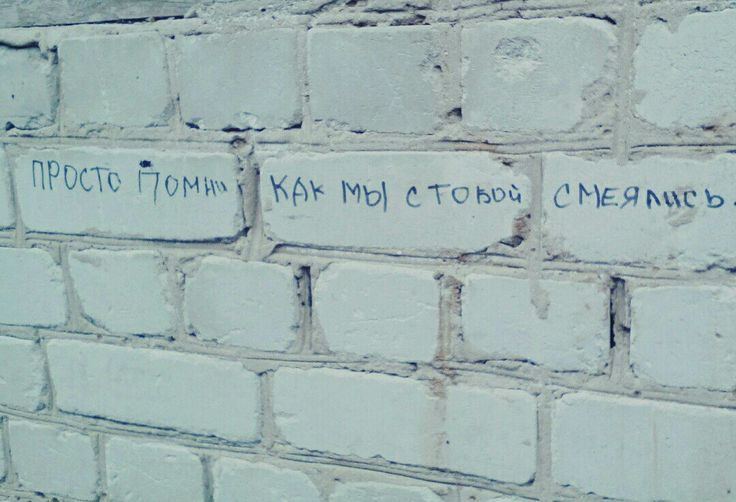 ПРОСТО ПОМНИ КАК МЫ С ТОБОЙ СМЕЯЛИСЬ.